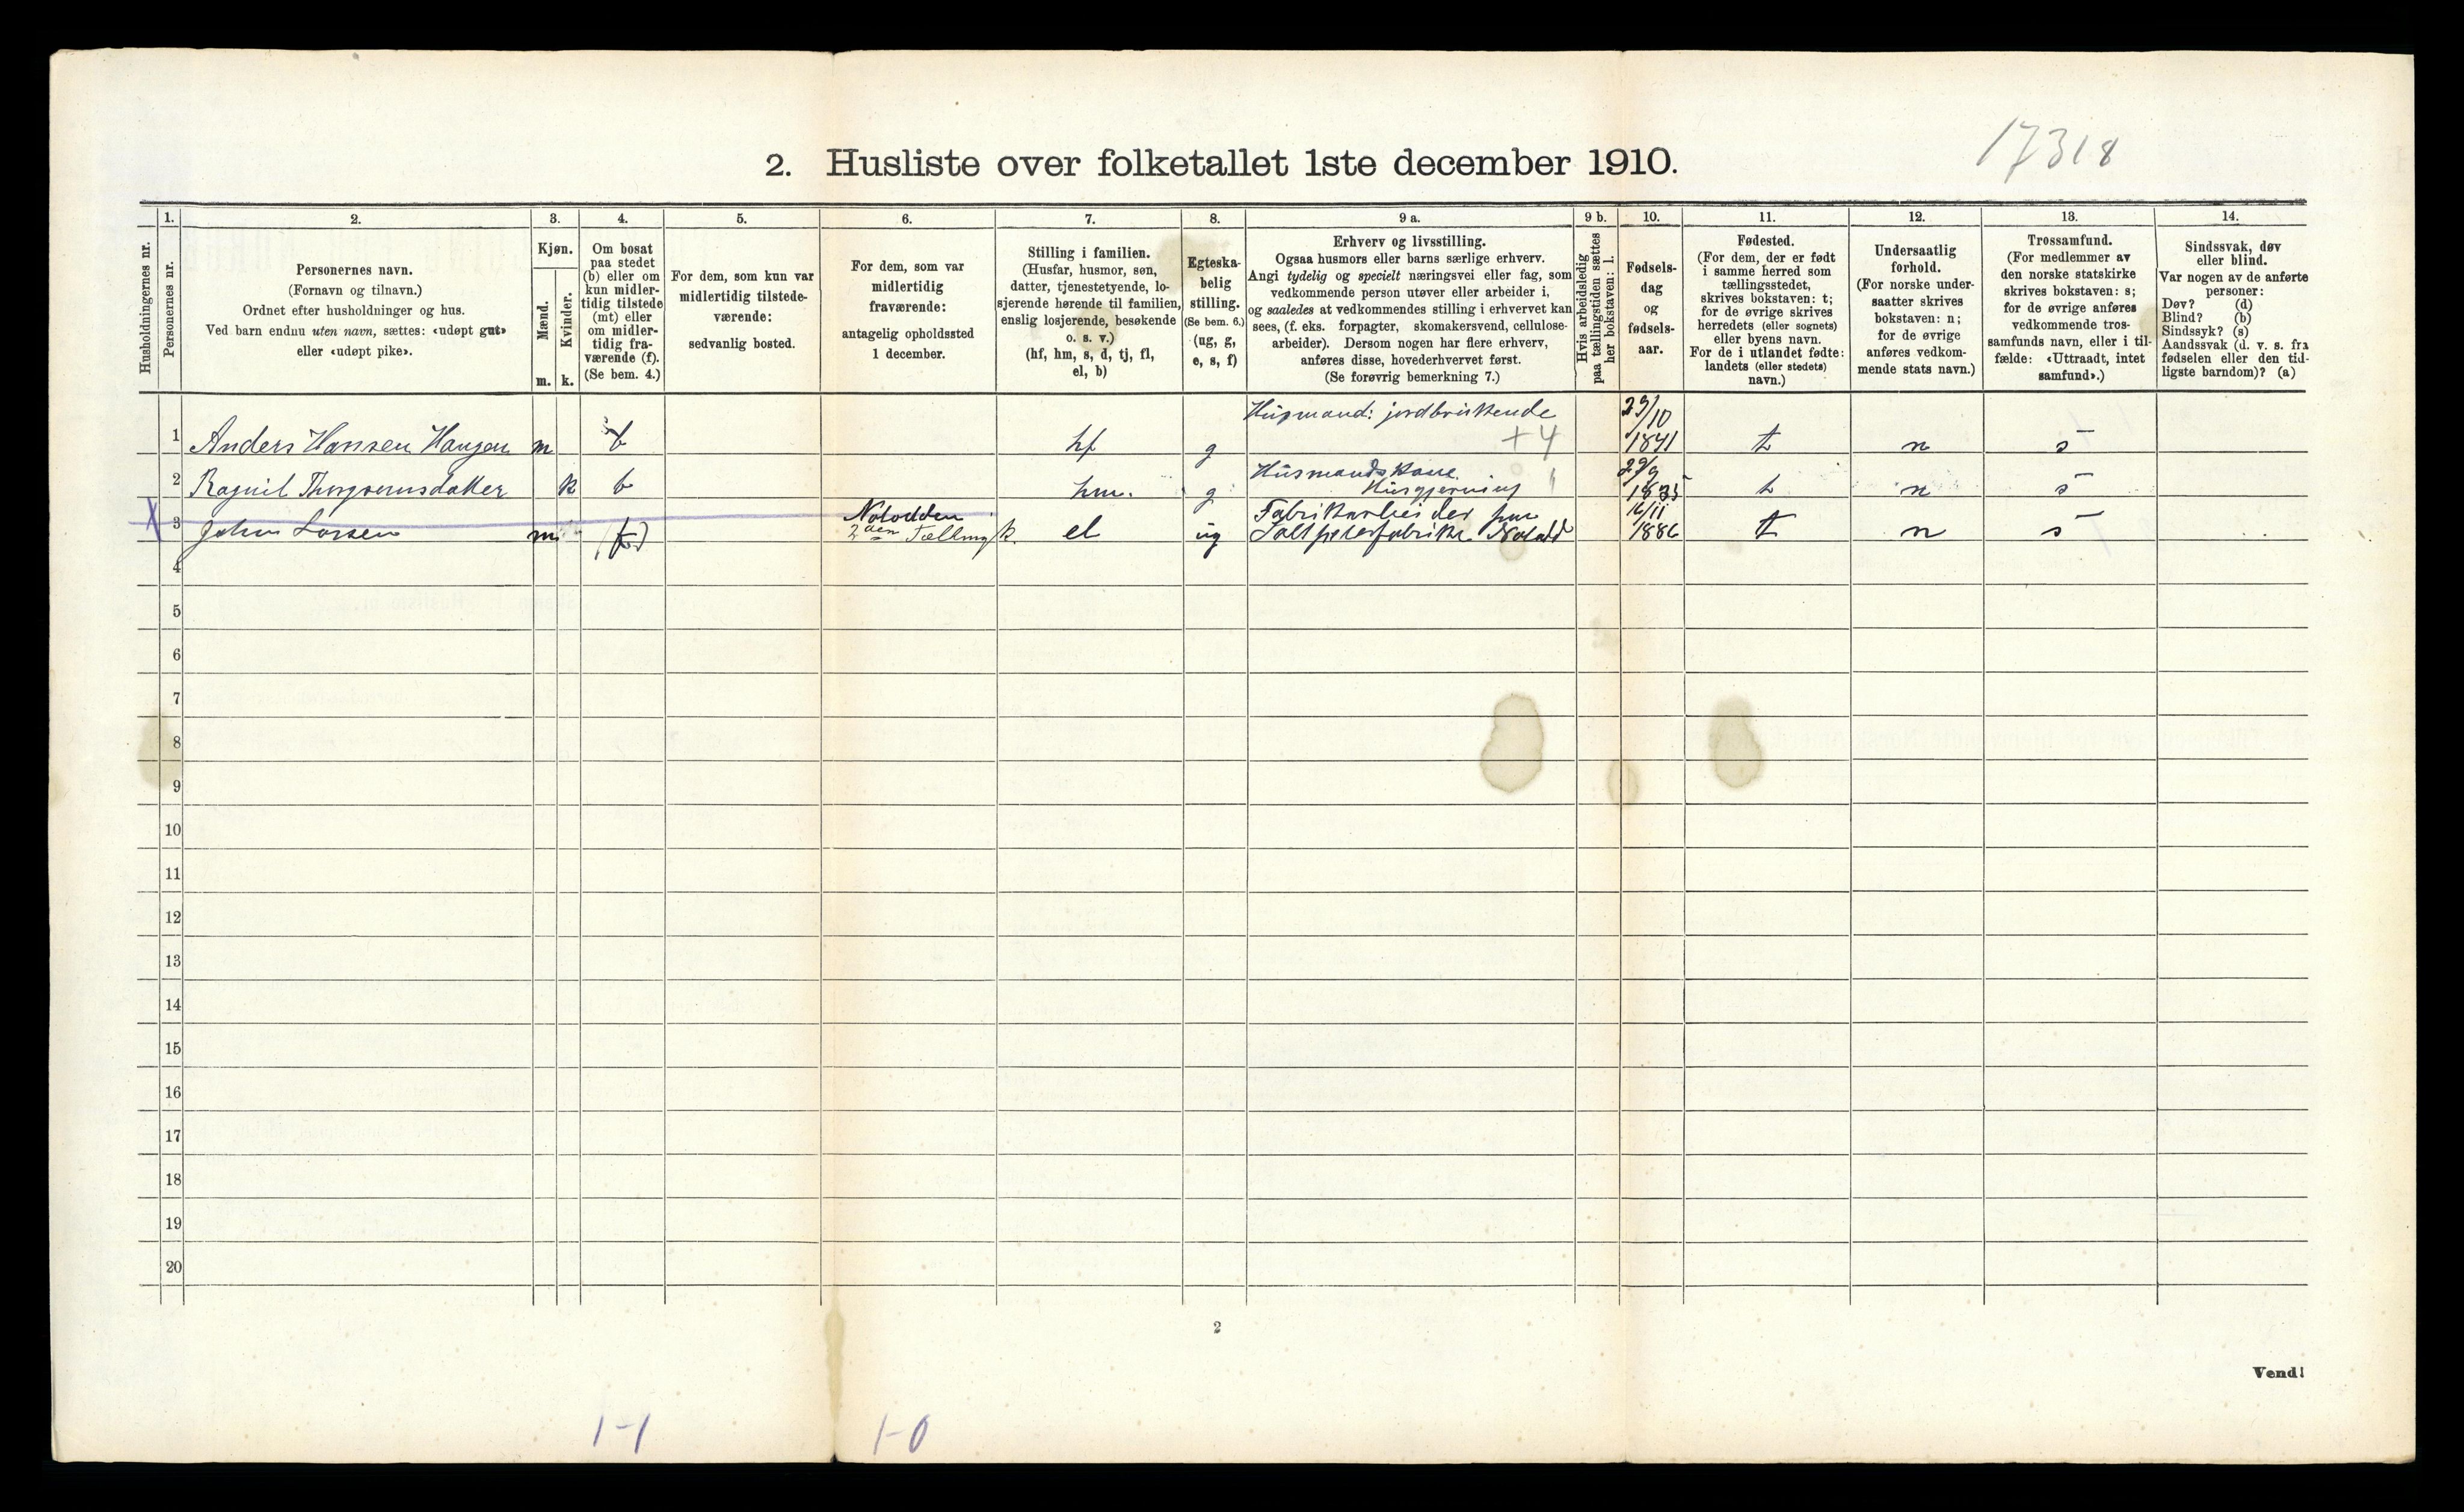 17318
2. Husliste over folketallet 1ste december 1910.
Husholdningernes nr.
1.
Personernes nr.
2.
Personernes navn.
(Fornavn og tilnavn.)
Ordnet efter husholdninger og hus.
Ved barn endnu uten navn, sættes: «udøpt gut»
eller «udøpt pike».
3.
Kjøn.
Mænd.
m.
Kvinder.
k.
4.
Om bosat
paa stedet
(b) eller om
kun midler-
tidig tilstede
(mt) eller
om midler-
tidig fra-
værende (f).
(Se bem. 4.)
5.
For dem, som kun var
midlertidig tilstede-
værende:
sedvanlig bosted.
6.
For dem, som var
midlertidig
fraværende:
antagelig opholdssted
1 december.
7.
Stilling i familien.
(Husfar, husmor, søn,
datter, tjenestetyende, lo-
sjerende hørende til familien,
enslig losjerende, besøkende
o. s. v.)
(hf, hm, s, d, tj, fl,
el, b)
8.
Egteska-
belig
stilling.
(Se bem. 6.)
(ug, g,
e, s, f)
9 a.
Erhverv og livsstilling.
Ogsaa husmors eller barns særlige erhverv.
Angi tydelig og specielt næringsvei eller fag, som
vedkommende person utøver eller arbeider i,
og saaledes at vedkommendes stilling i erhvervet kan
sees, (f. eks. forpagter, skomakersvend, cellulose-
arbeider). Dersom nogen har flere erhverv,
anføres disse, hovederhvervet først.
(Se forøvrig bemerkning 7.)
9 b.
Hvis arbeidsledig
paa tællingstiden sættes
her bokstaven: l.
10.
Fødsels-
dag
og
fødsels-
aar.
11.
Fødested.
(For dem, der er født
i samme herred som
tællingsstedet,
skrives bokstaven: t;
for de øvrige skrives
herredets (eller sognets)
eller byens navn.
For de i utlandet fødte:
landets (eller stedets)
navn.)
12.
Undersaatlig
forhold.
(For norske under-
saatter skrives
bokstaven: n;
for de øvrige
anføres vedkom-
mende stats navn.)
13.
Trossamfund.
(For medlemmer av
den norske statskirke
skrives bokstaven: s;
for de øvrige anføres
vedkommende tros-
samfunds navn, eller i til-
fælde: «Uttraadt, intet
samfund».)
14.
Sindssvak, døv
eller blind.
Var nogen av de anførte
personer:
Døv? (d)
Blind? (b)
Sindssyk? (s)
Aandssvak (d. v. s. fra
fødselen eller den tid-
ligste barndom)? (a)
Husmand: jordbrukende 29/10
1 Anders Hansen Haugen m b hf g +4 1841 t n s
Husmandskone 29/9
2 k b hm. g Husgjerning 1835 t n s
X Notodden Fabrikarbeider 16/11
3 Johan Larsen m (f) 2den Tælling k. el ug Saltpeterfabrik 1886 t n s
4
5
6
7
8
9
10
11
12
13
14
15
16
17
18
19
20
2
Vend!
1-1 1-0